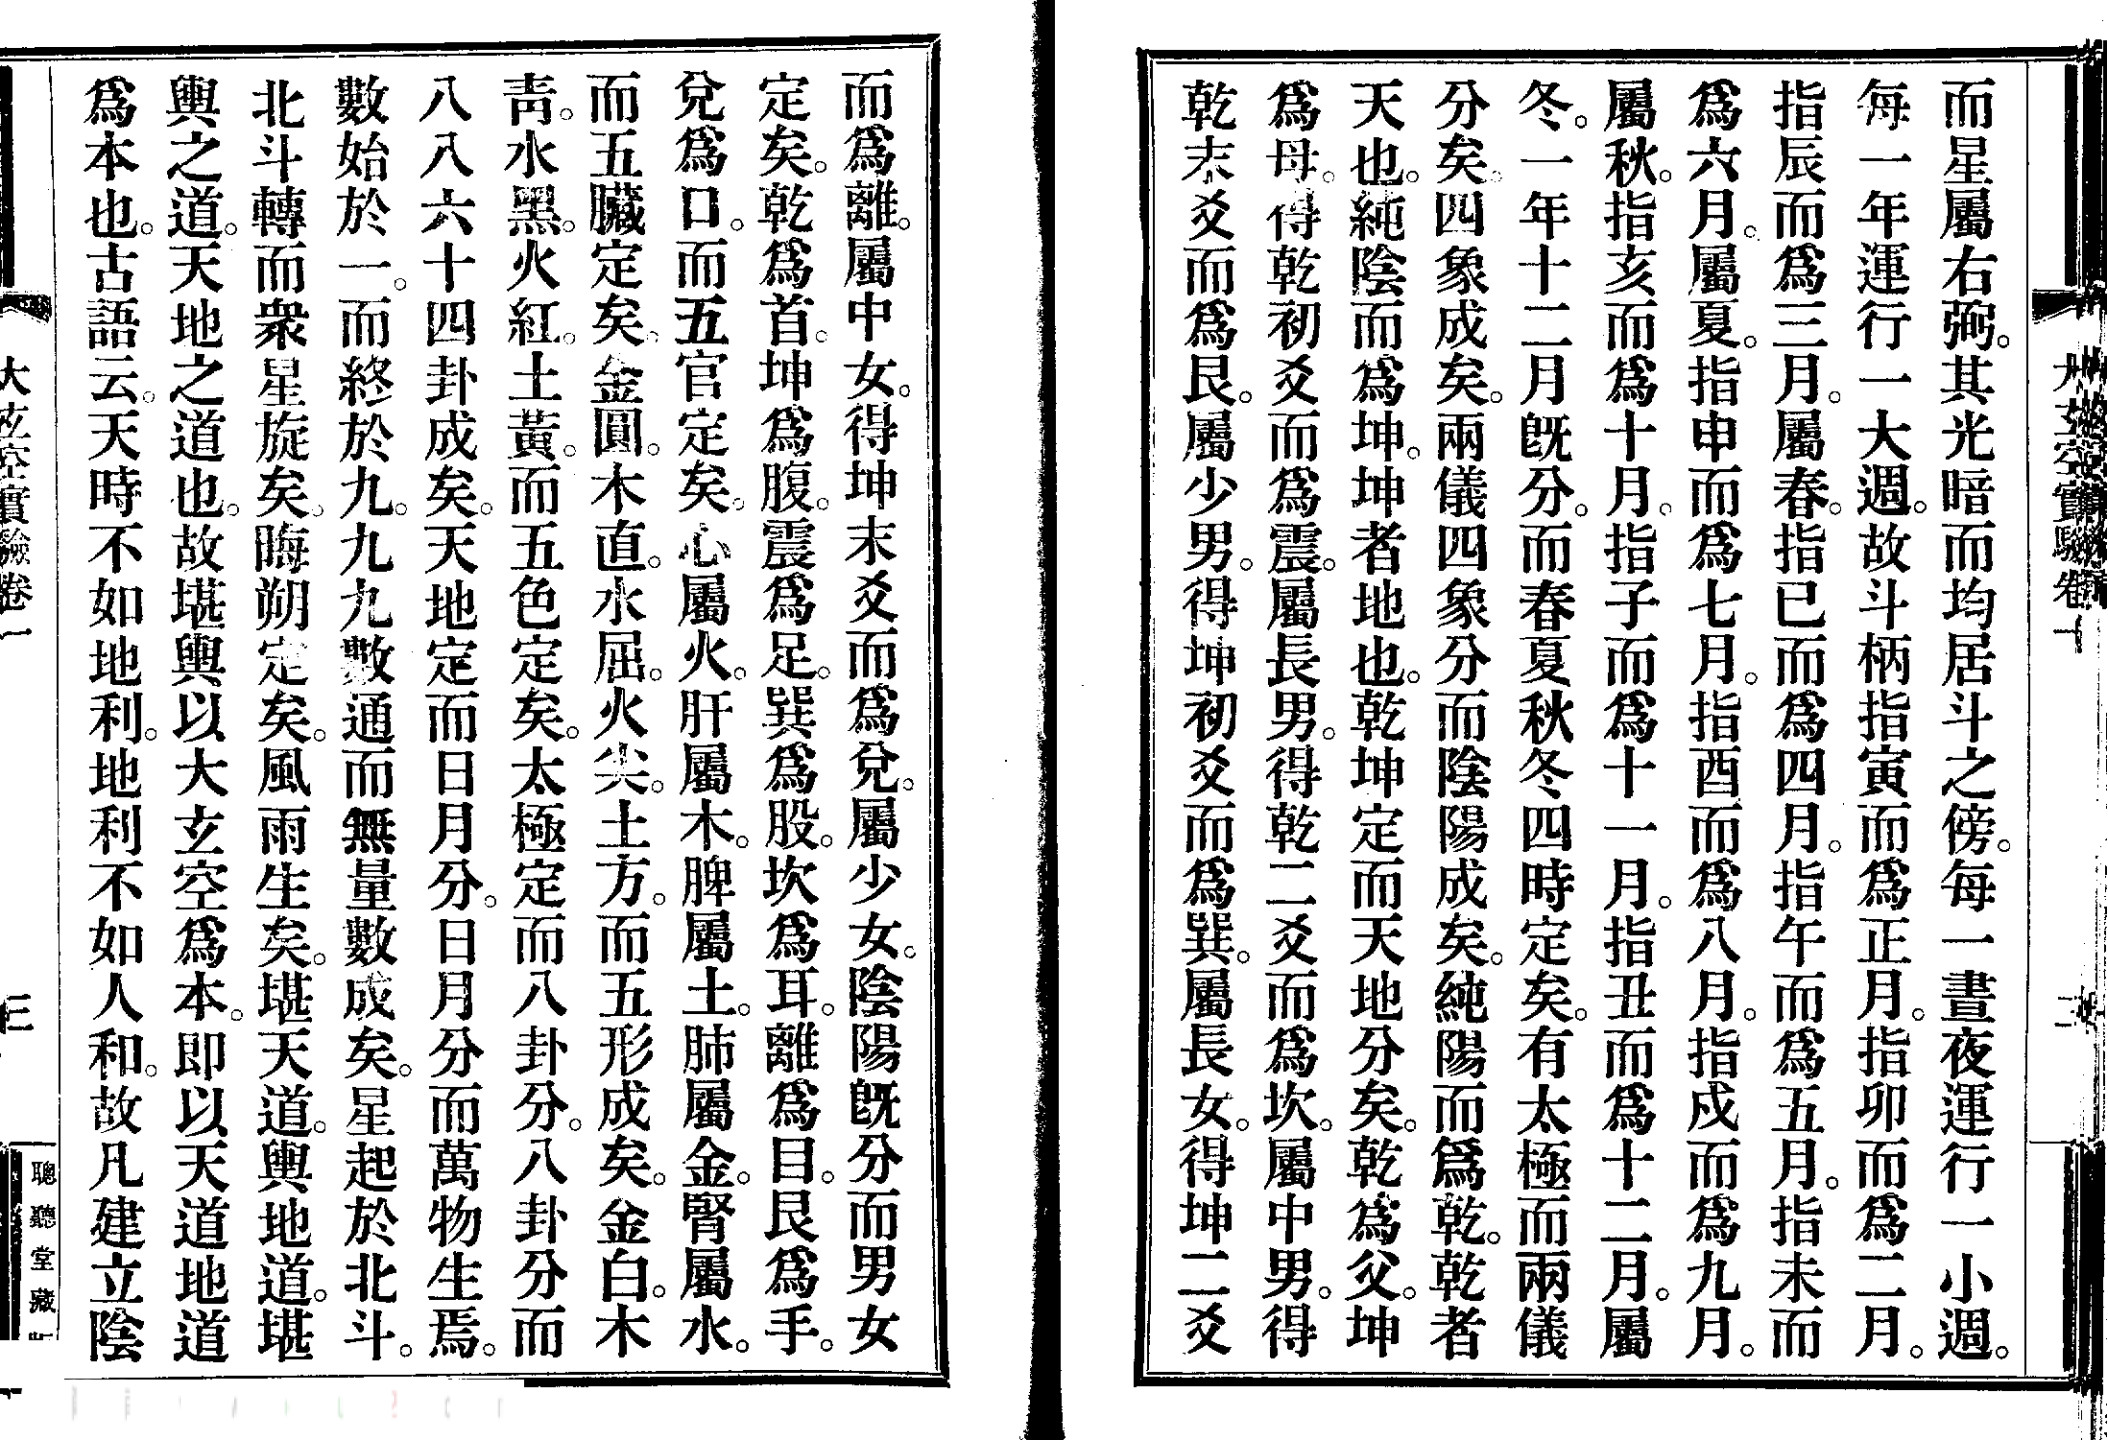 而星屬右弼。其光暗而均居斗之傍。每一晝夜運行一小週。
每一年運行一大週。故斗柄指寅而為正月。指卯而為二月。
指辰而為三月。屬春。指巳而為四月。指午而為五月。指未而
為六月。屬夏。指申而為七月。指酉而為八月。指戌而為九月。
屬秋。指亥而為十月。指子而為十一月。指丑而為十二月。屬
冬。一年十二月既分。而春夏秋冬四時定矣。有太極而兩儀
分矣。四象成矣。兩儀四象分而陰陽成矣。純陽而為乾。乾者
天也。純陰而為坤。坤者地也。乾坤定而天地分矣。乾為父。坤
為母。得乾初爻而為震。屬長男。得乾二爻而為坎。屬中男。得
乾末爻而為艮。屬少男。得坤初爻而為巽。屬長女。得坤二爻
而為離。屬中女。得坤末爻而為兌。屬少女。陰陽既分而男女
定矣。乾為首。坤為腹。震為足。巽為股。坎為耳。離為目。艮為手。
兌為口。而五官定矣。心屬火。肝屬木。脾屬土。肺屬金。腎屬水。
而五臟定矣。金圓。木直。水屈。火尖。土方。而五形成矣。金白。木
青。水黑。火紅。土黃。而五色定矣。太極定而八卦分。八卦分而
八八六十四卦成矣。天地定而日月分。日月分而萬物生焉。
數始於一。而終於九。九九數通而無量數成矣。星起於北斗。
北斗轉而衆星旋矣。晦朔定矣。風雨生矣。堪天道。輿地道。堪
輿之道。天地之道也。故堪輿以大玄空為本。即以天道地道
為本也。古語云。天時不如地利。地利不如人和。故凡建立陰
大玄空實驗卷一
三
聰聽堂藏